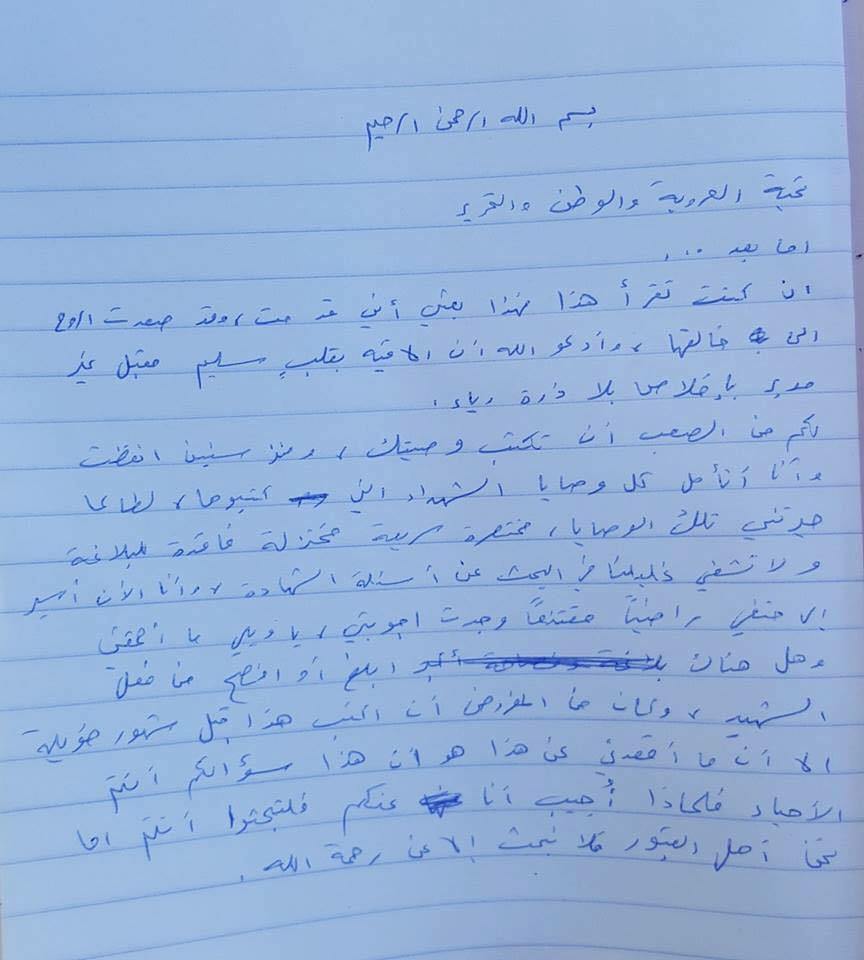 بسم الله الرحمن الرحيم
تحية العروبة والوطن والتحرير
اما بعد ...
ان كنت تقرأ هذا فهذا يعني أني قد مت، وقد صعدت الروح
الى خالقها، وأدعو الله أن الاقيه بقلبٍ سليم مقبل غير
مدبر بإخلاص بلا ذرة رياء.
لكم من الصعب أن تكتب وصيتك، ومنذ سنين انقضت
وأنا أتأمل كل وصايا الشهداء التي كتبوها، لطالما
حيرتني تلك الوصايا، مختصرة سريعة مختزلة فاقدة للبلاغة
ولا تشفي غليلنا في البحث عن أسئلة الشهادة، وأنا الآن أسير
إلى حتفي راضيًا مقتنعًا وجدت اجوبتي، يا ويلي ما أحمقني
وهل هناك ابلغ أو افصح من فعل
الشهيد، وكان من المفروض أن اكتب هذا قبل شهور طويلة
الا أن ما أقعدني عن هذا هو أن هذا سؤالكم أنتم
الأحياء فلماذا أُجيب أنا عنكم فلتبحثوا أنتم اما
نحن أهل القبور فلا نبحث إلا عن رحمة الله.